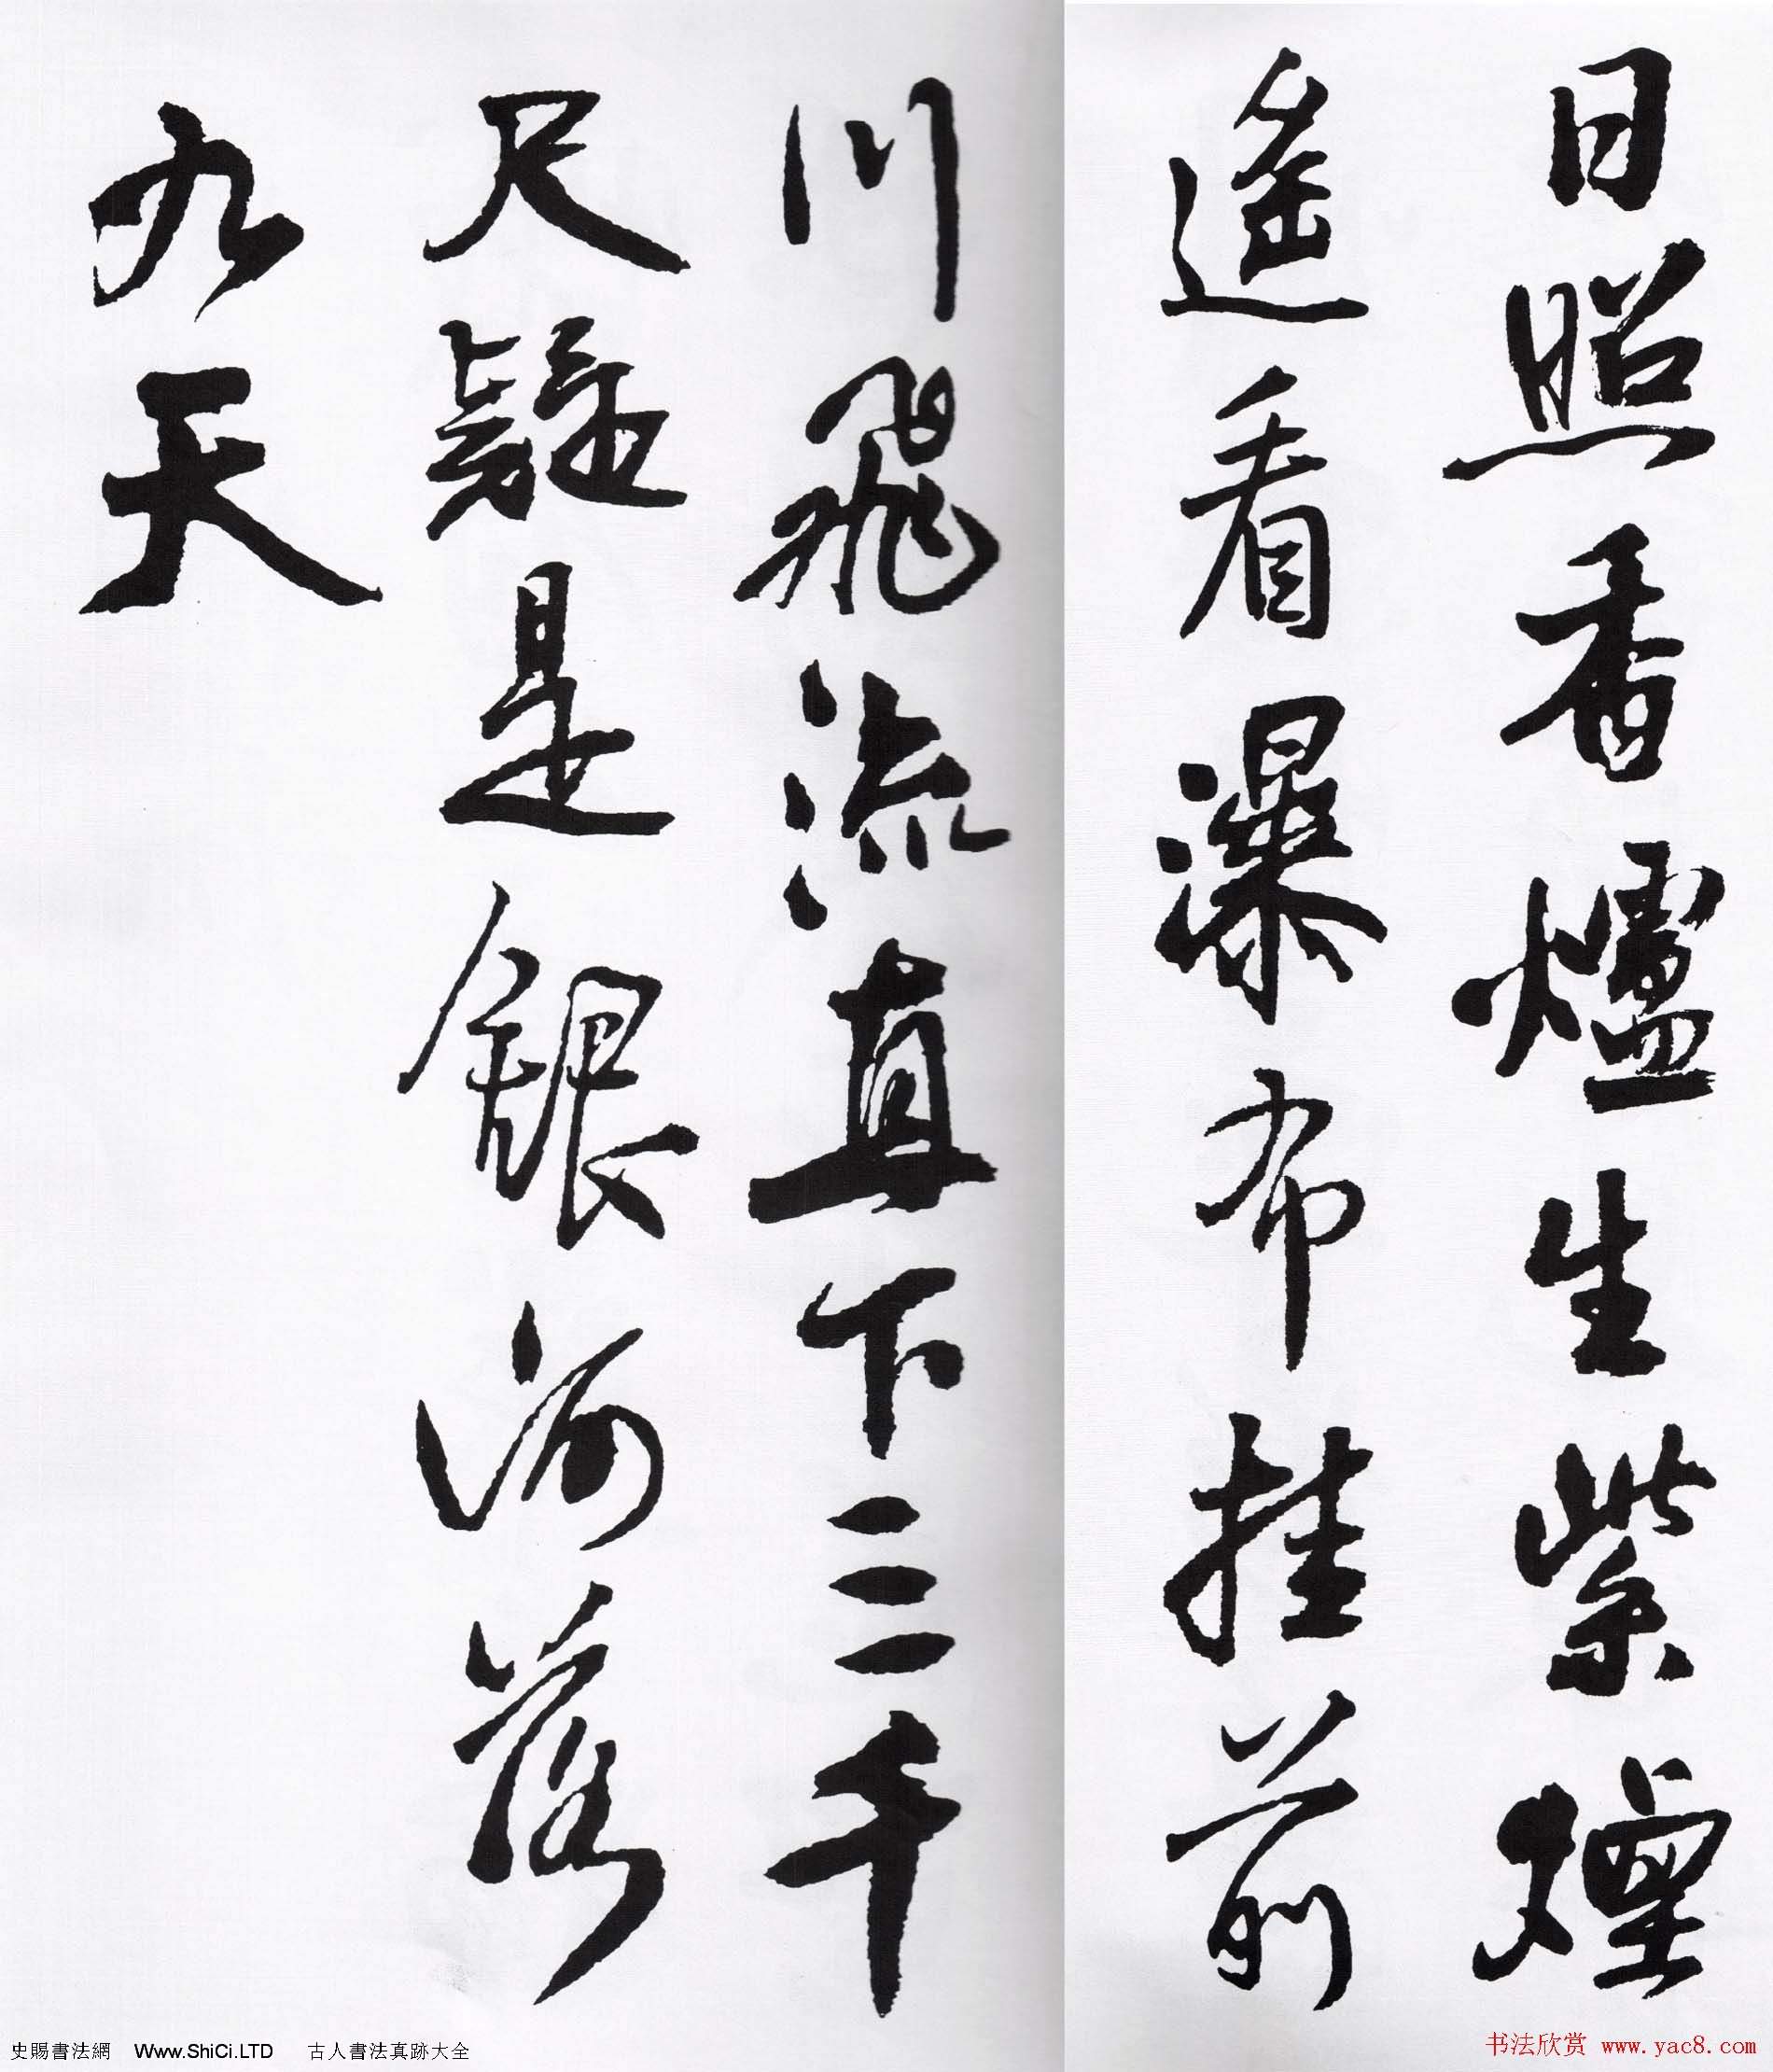 日照香爐生紫煙
遙看瀑布挂前
川飛流直下三千
尺疑是銀河落
九天
史賜書法網 Www.ShiCi.LTD 古人書法真跡大全
书法欣赏 www.yac8.com